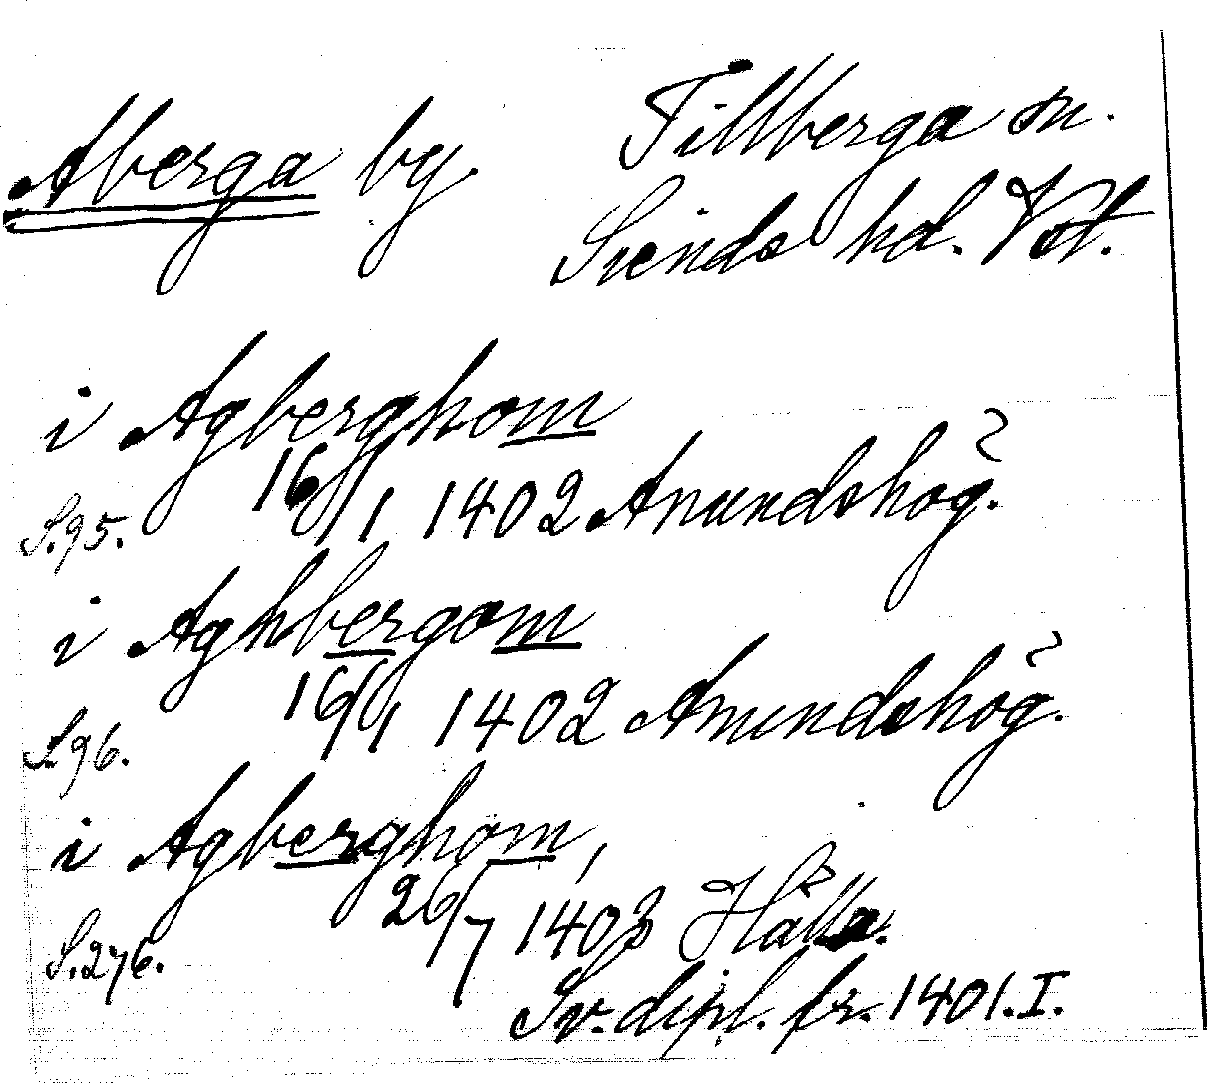 Aberga by. Tillberga sn.
Siends hd. Vst.
i Agberghom
S.95. 16/1 1402 Anundshög.
i Aghbergom
S.96. 16/1 1402 Anundshög.
i Agberghom,
S.276. 26/7 1403 Hälla.
Sv. dipl. fr. 1401. I.